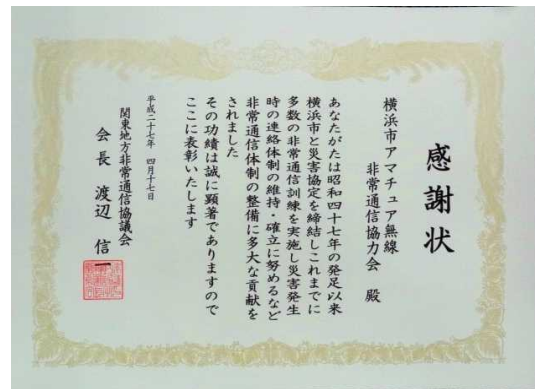 感謝状
横浜市アマチュア無線
非常通信協力会 殿
あなたがたは昭和四十七年の発足以来
横浜市と災害協定を締結しこれまでに
多数の非常通信訓練を実施し災害発生
時の連絡体制の維持・確立に努めるなど
非常通信体制の整備に多大な貢献を
されました
その功績は誠に顕著でありますので
ここに表彰いたします
平成二十七年 四月十七日
関東地方非常通信協議会
会長 渡辺 信一